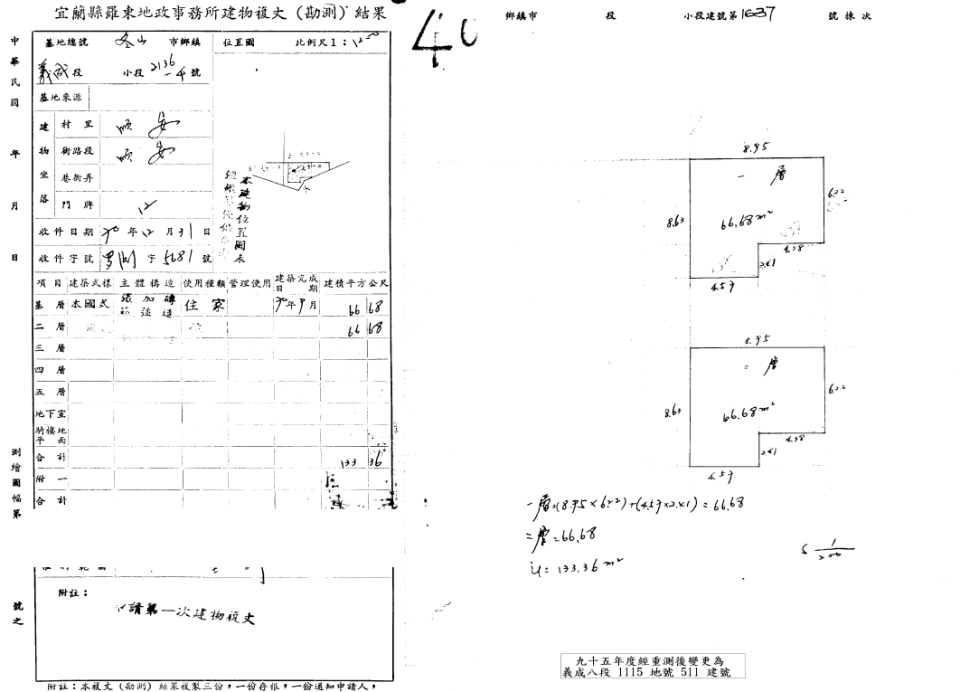 宜蘭縣羅東地政事務所建物複丈(勘測)結果
中華民國 年 月 日
基地總號 冬山 市鄉鎮
義成段 小段 2136-4號
基地來源
建物坐落
村里 順安
街路段 順安
巷衖弄
門牌 12
收件日期 70年12月31日
收件字號 羅測字5681號
位置圖 比例尺1:1200
本建物位置圖衣
項目 建築式樣 主體構造 使用種類 管理使用 建築完成日期 建積平方公尺
基層 本國式 加強磚造 住家 70年9月 66 68
二層 66 68
三層
四層
五層
地下室
騎樓地平面
合計 133 36
附一
合計
測繪圖幅第
號之
附註:
申請第一次建物複丈
附註:本複丈(勘測)結果複製三份,一份存根,一份通知申請人,
40
鄉鎮市 段 小段建號第1637 號 棟次
8.95
一層
6.22
8.63
66.68m²
4.38
2.41
4.57
8.95
二層
6.22
8.63
66.68m²
4.38
2.41
4.57
一層=(8.95×6.22)+(4.57×2.41)=66.68
二層=66.68
計:133.36m²
S 1/200
九十五年度經重測後變更為
義成八段 1115 地號 511 建號